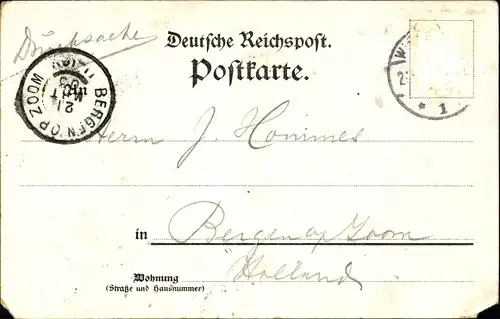 Drucksache
Deutsche Reichspost.
Postkarte.
BERGEN OP ZOOM
Herrn J. Hommes
in Bergen op Zoom
Holland
Wohnung
(Straße und Hausnummer)
* 1